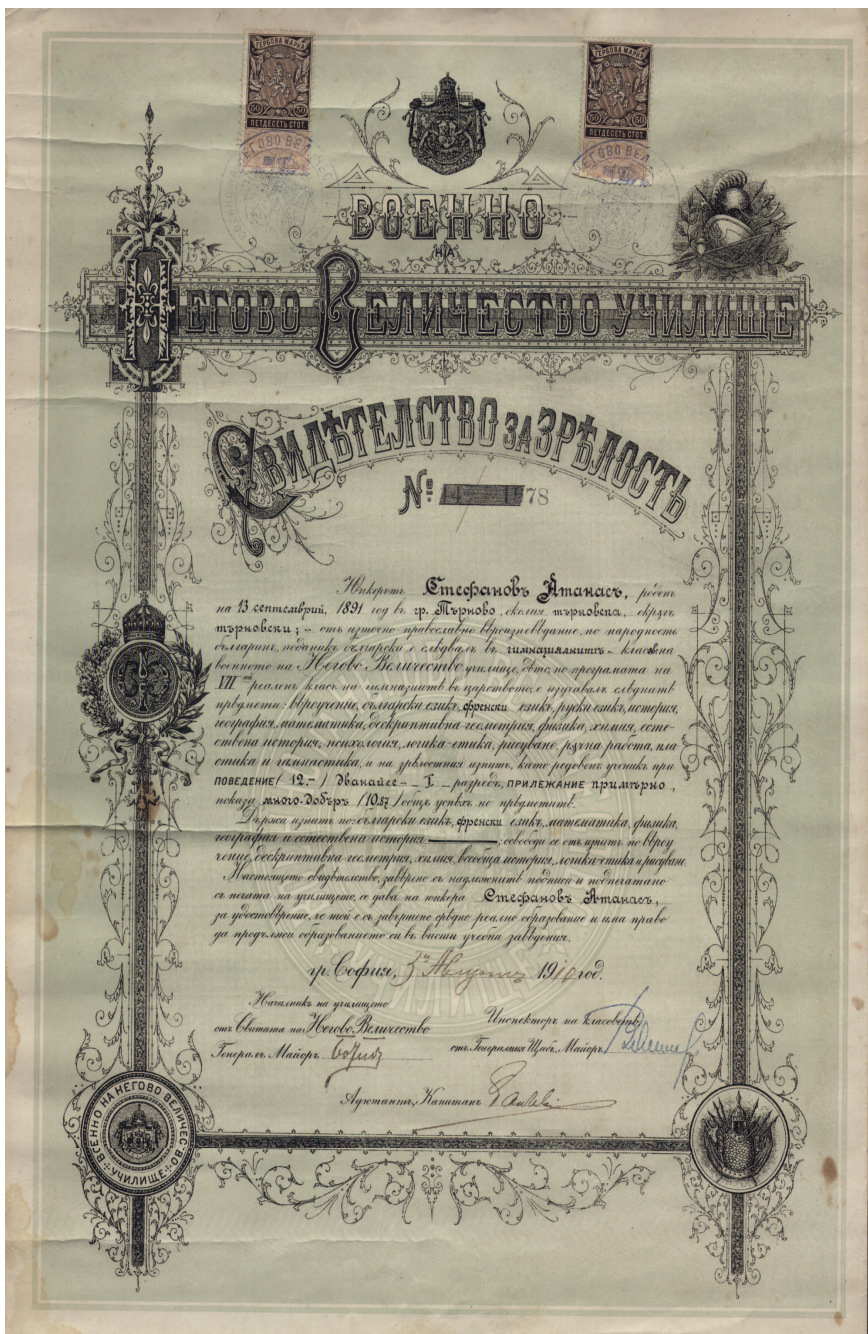 ГЕРБОВА МАРКА
50 50
ПЕТДЕСЕТЬ СТОТ.
ГЕРБОВА МАРКА
50 50
ПЕТДЕСЕТЬ СТОТ.
ВОЕННО
НА
НЕГОВО ВЕЛИЧЕСТВО УЧИЛИЩЕ
СВИДѢТЕЛСТВО ЗА ЗРѢЛОСТЬ
№ 78
Юнкерътъ Стефановъ Атанасъ, роденъ
на 13 септемврий 1891 год въ гр. Търново, околия търновска, окрѫгъ
търновски; – отъ източно православно вѣроизповѣдание, по народность
българинъ, поданикъ български е слѣдвалъ въ гимназиялнитѣ класове на
военното на Негово Величество училище, дѣто, по програмата на
VII реаленъ класъ на гимназиитѣ въ царството, е изучавалъ слѣднитѣ
прѣдмети: вѣроучение, български езикъ, френски езикъ, руски езикъ, история,
география, математика, дескриптивна геометрия, физика, химия, есте-
ствена история, психология, логика-етика, рисуване, рѫчна работа, пла
стика и гимнастика, и на зрѣлостния изпитъ, като редовенъ ученикъ при
ПОВЕДЕНИЕ (12.–) Дванайсе – I – разредъ, ПРИЛЕЖАНИЕ примѣрно,
показа много-добъръ (10.87) общъ успѣхъ по прѣдметитѣ.
Държа изпитъ по: български езикъ, френски езикъ, математика, физика,
география и естествена история; освободи се отъ изпитъ по вѣроу
чение, дескриптивна геометрия, химия, всеобща история, логика-етика и рисуване.
Настоящето свидѣтелство, завѣрено съ надлежнитѣ подписи и подпечатано
съ печата на училището, се дава на юнкера Стефановъ Атанасъ,
за удостовѣрение, че той е съ завършено срѣдно реално образование и има право
да продължи образованието си въ висши учебни заведения.
гр. София, 3 Августъ 1910 год.
Началникъ на училището
отъ Свитата на Негово Величество
Генералъ Майоръ
Инспекторъ на класоветѣ,
отъ Генералния Щабъ, Майоръ
Адютантъ, Капитанъ
ВОЕННО НА НЕГОВО ВЕЛИЧЕСТВО
УЧИЛИЩЕ